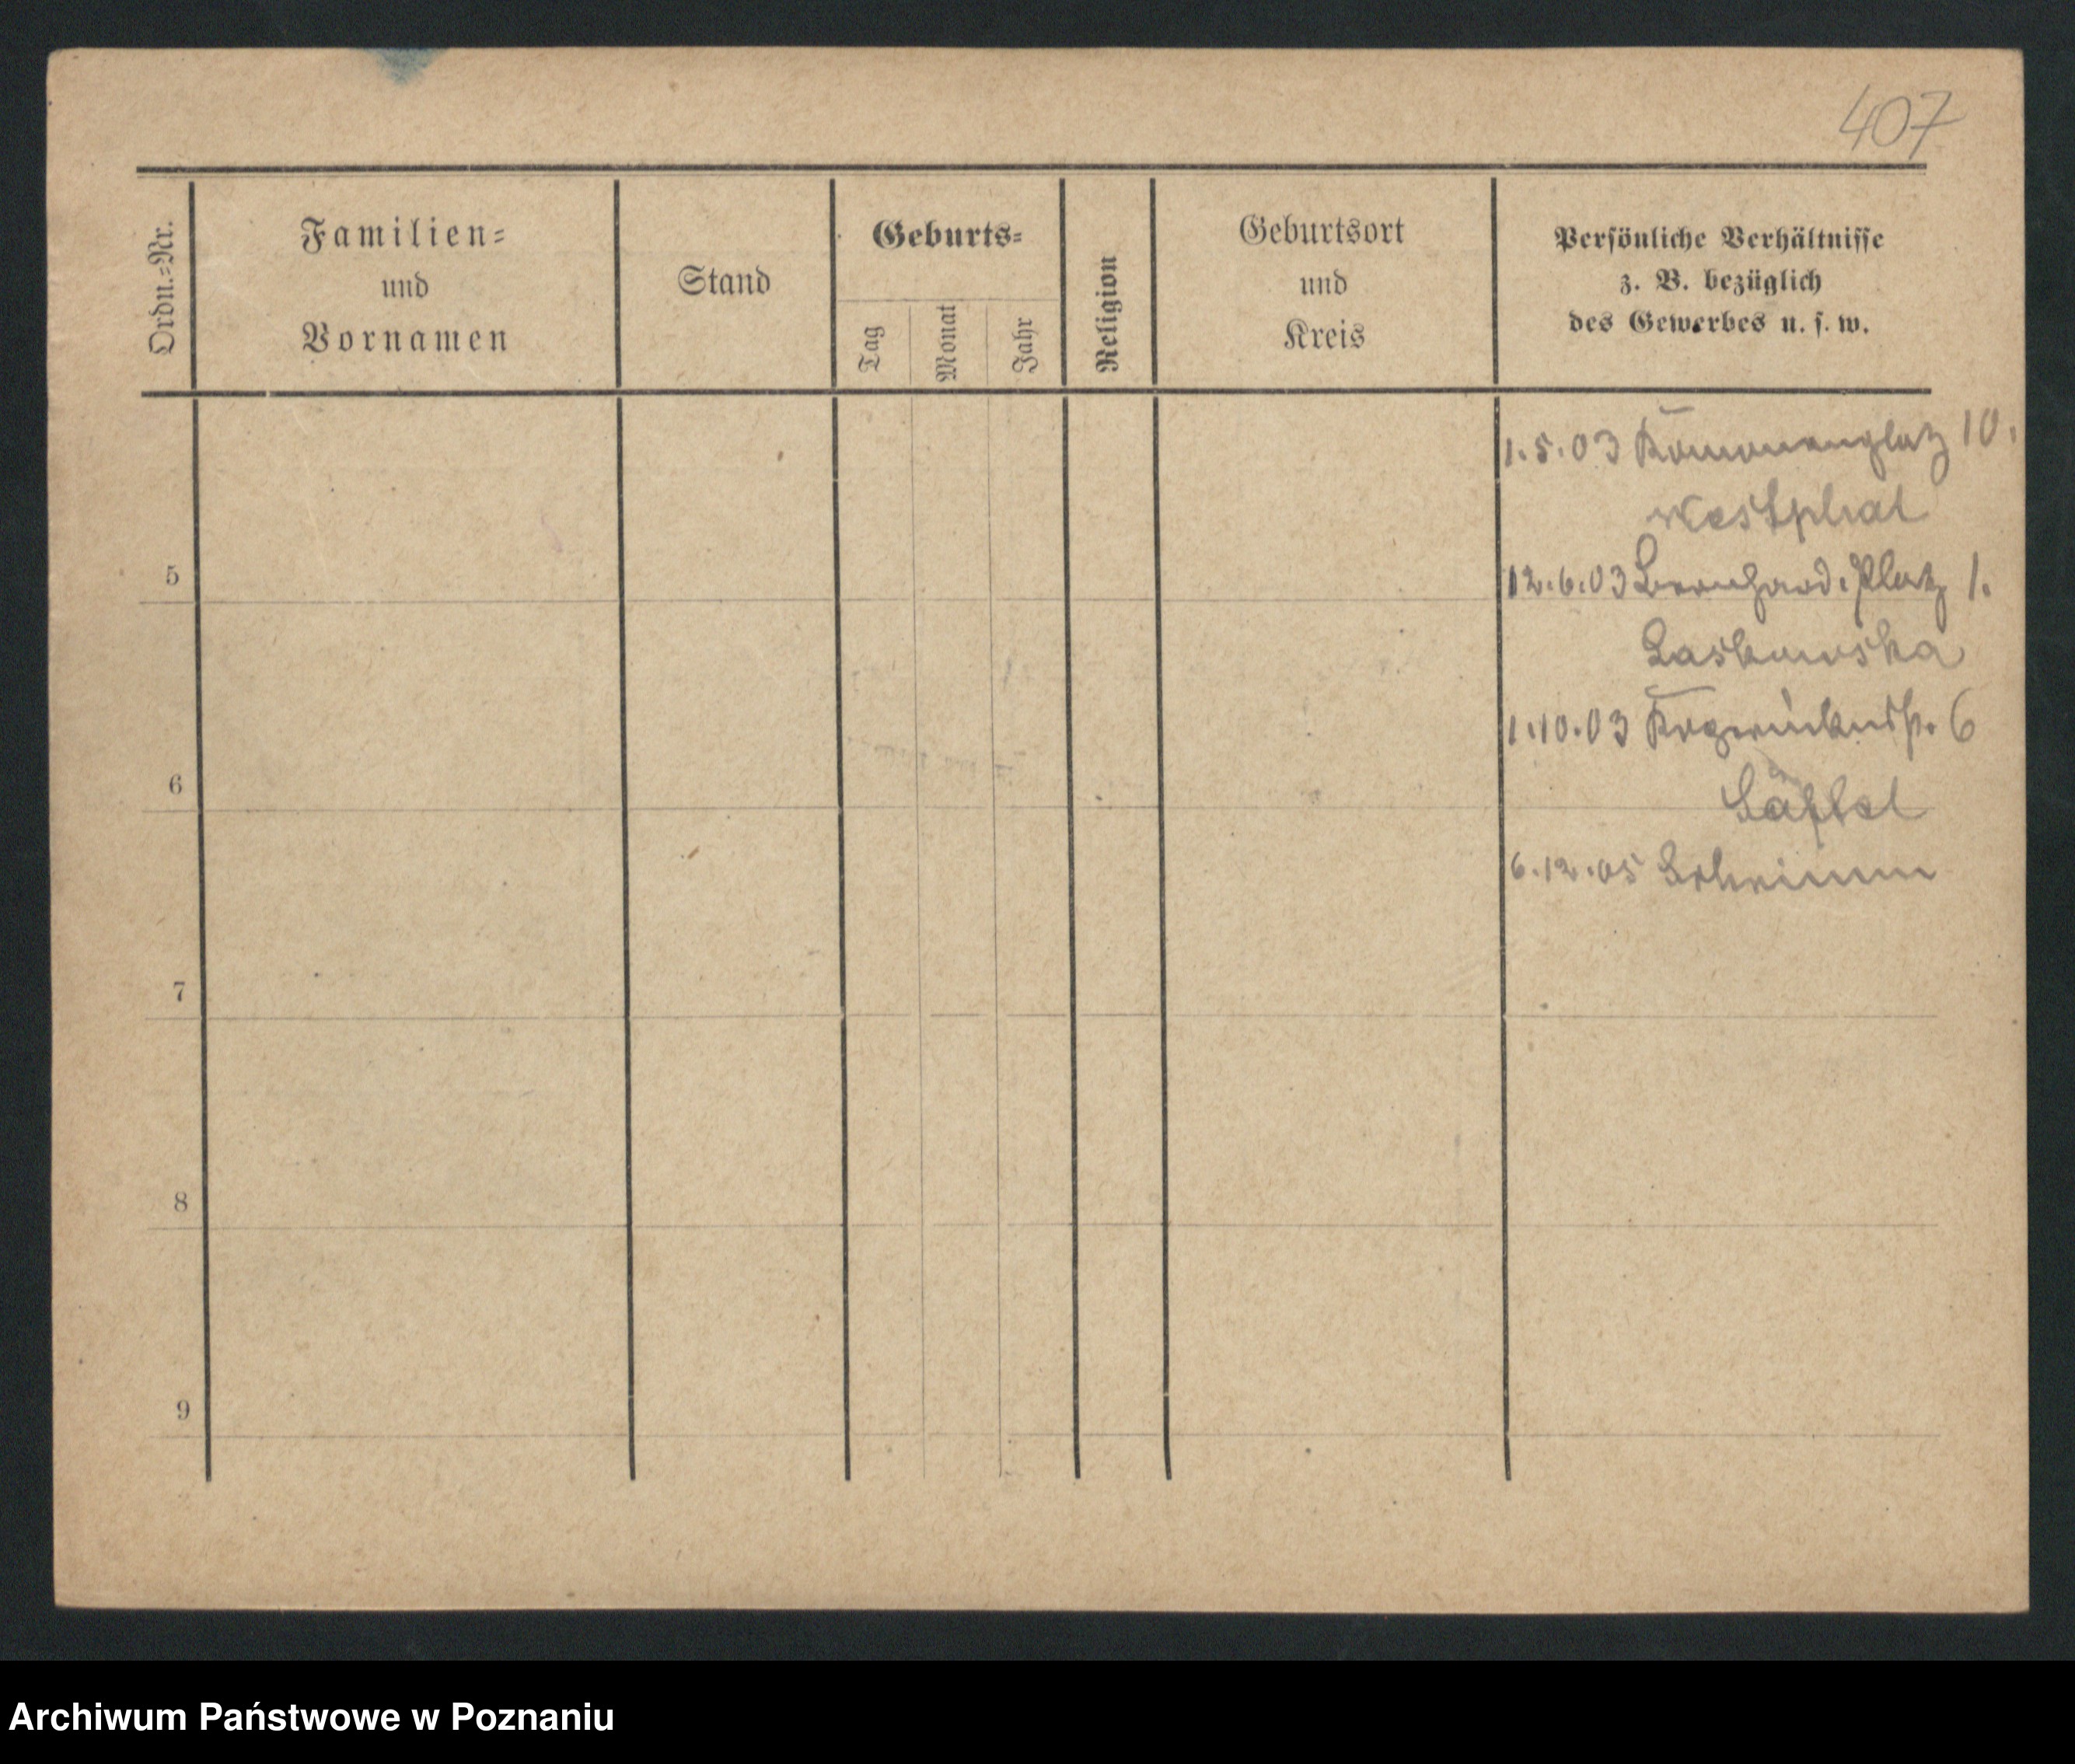 407
Ordn.-Nr.
Familien-
und
Vornamen
Stand
Geburts-
Tag
Monat
Jahr
Religion
Geburtsort
und
Kreis
Persönliche Verhältnisse
z. B. bezüglich
des Gewerbes u. s. w.
1.5.03 10.
Westphal
5
12.6.03 Bernhard. Platz 1.
Laskowska
1.10.03 6
6
6.12.05 Schrimm
7
8
9
Archiwum Państwowe w Poznaniu